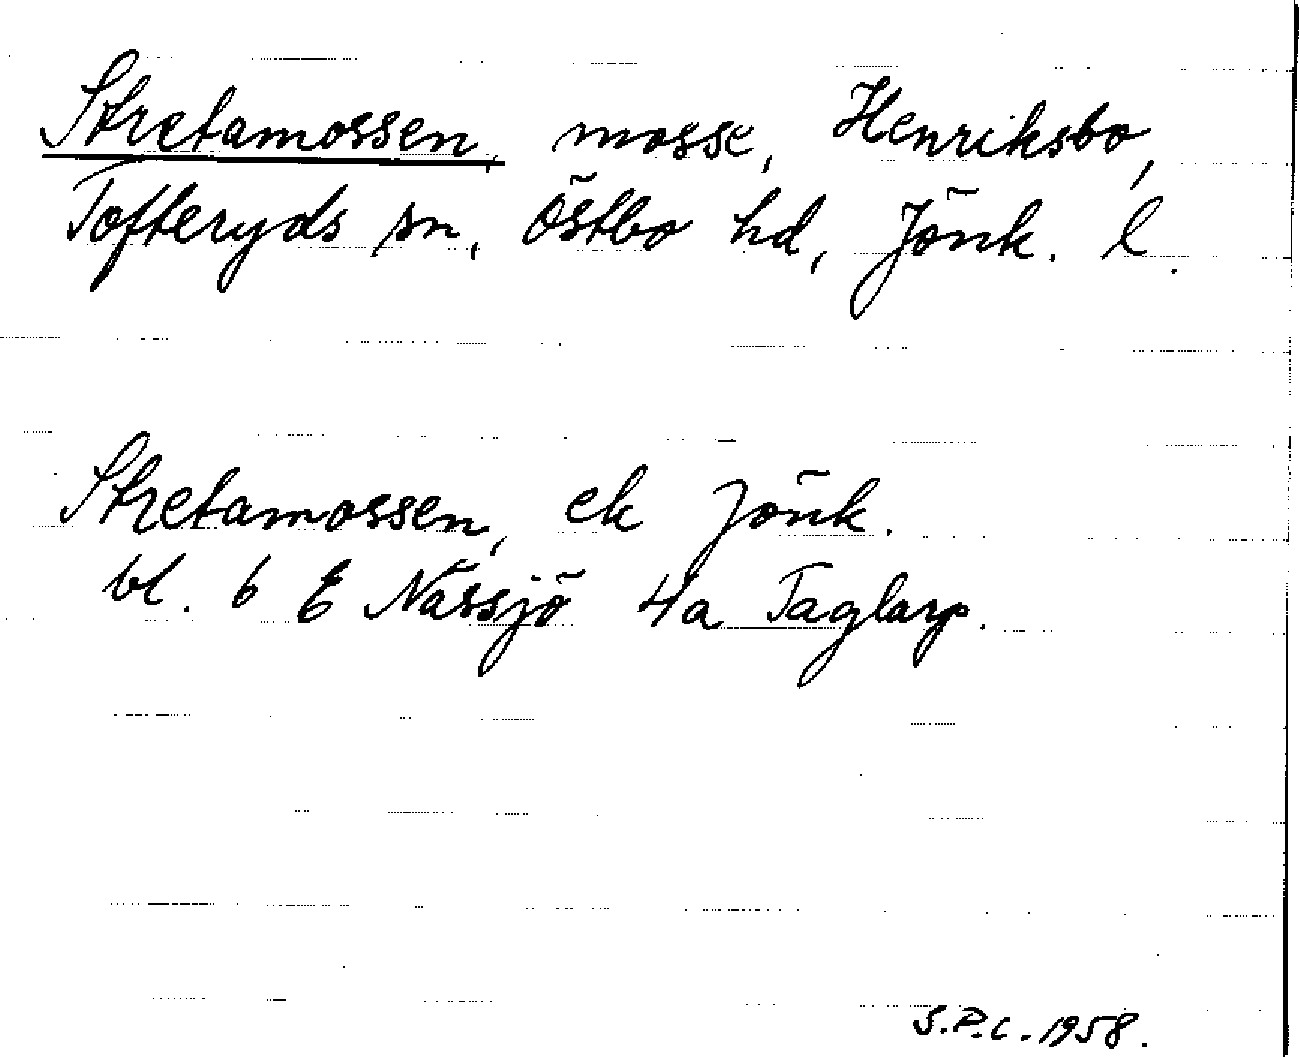 Stretamossen, mosse, Henriksbo,
Tofteryds sn, Östbo hd, Jönk. l.
Stretamossen, ek Jönk.
bl. 6 E Nässjö 4a Taglarp.
S.P.L. 1958.